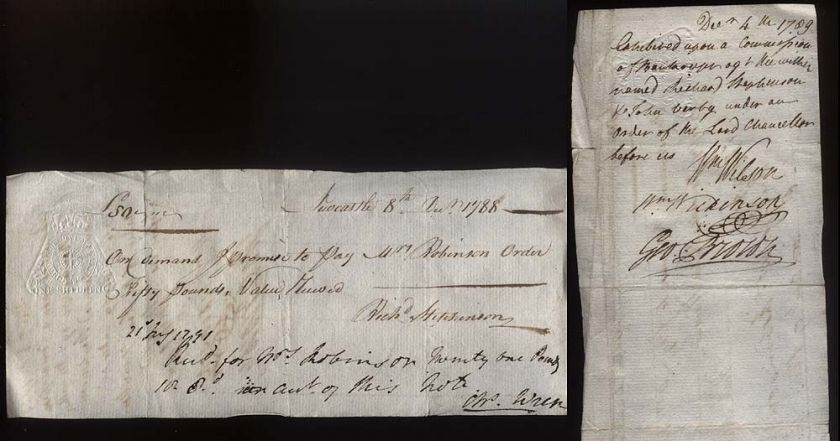 £50
Newcastle 8th 1788
On Demand I Promise to Pay Mrs Robinson Order
Fifty Pounds, Value Received
Richd Stephenson
21st 1791
for Mrs Robinson Twenty one Pounds
10s 8d in acct of this Note
Chr. Wren
Decr 4th 1789
Exhibited upon a Commission
of Bankrupt agt the within
named Richard Stephenson
& John under an
Order of the Lord Chancellor
before us Wm Wilson
Wm Wilkinson
Geo Brown